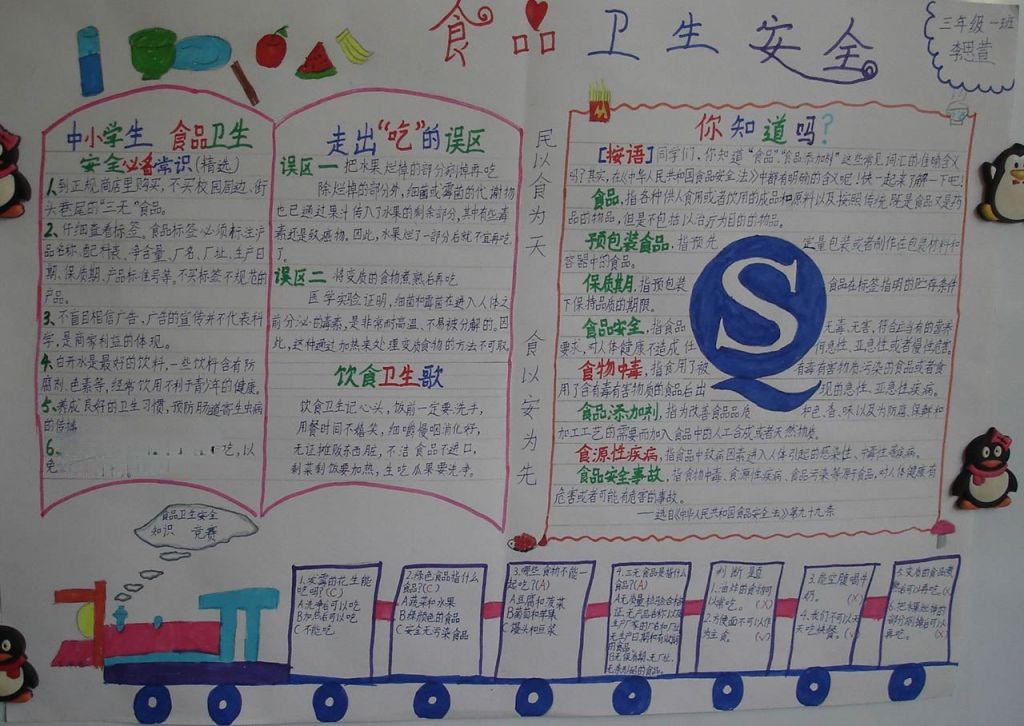 食品卫生安全
三年级一班
李思萱
中小学生 食品卫生
安全必备常识(精选)
1、到正规商店里购买,不买校园周边、街
头巷尾的“三无”食品。
2、仔细查看标签。食品标签必须标注产
品名称、配料表、净含量、厂名、厂址、生产日
期、保质期、产品标准号等。不买标签不规范的
产品。
3、不盲目相信广告、广告的宣传并不代表科
学,是商家利益的体现。
4、白开水是最好的饮料,一些饮料含有防
腐剂、色素等,经常饮用不利于青少年的健康。
5、养成良好的卫生习惯,预防肠道寄生虫病
的传播
6、
吃,以
免
走出“吃”的误区
误区一 把水果烂掉的部分剜掉再吃
除烂掉的部分外,细菌或霉菌的代谢物
也已通过果汁传入了水果的剩余部分,其中有些毒
素还是致癌物。因此,水果烂了一部分后就不宜再吃
了。
误区二 将变质的食物煮熟后再吃
医学实验证明,细菌和霉菌在进入人体之
前分泌的毒素,是非常耐高温、不易被分解的。因
此,这种通过加热来处理变质食物的方法不可取
饮食卫生歌
饮食卫生记心头,饭前一定要洗手,
用餐时间不嬉笑,细嚼慢咽消化好,
无证摊贩东西脏,不洁食品不进口,
剩菜剩饭要加热,生吃瓜果要洗净。
民以食为天
食以安为先
你知道吗?
[按语]同学们,你知道“食品”“食品添加料”这些常见词汇的准确含义
吗?其实,在《中华人民共和国食品安全法》中都有明确的含义呢!快一起来了解一下吧!
食品,指各种供人食用或者饮用的成品和原料以及按照传统既是食品又是药
品的物品,但是不包括以治疗为目的的物品。
预包装食品,指预先
定量包装或者制作在包装材料和
容器中的食品。
保质期,指预包装
食品在标签指明的贮存条件
下保持品质的期限。
食品安全,指食品
无毒、无害、符合应当有的营养
要求,对人体健康不造成任
何急性、亚急性或者慢性危害。
食物中毒,指食用了被
有毒有害物质污染的食品或者食
用了含有毒有害物质的食品后出
现的急性、亚急性疾病。
食品添加剂,指为改善食品品质
和色、香、味以及为防腐、保鲜和
加工工艺的需要而加入食品中的人工合成或者天然物质。
食源性疾病,指食品中致病因素进入人体引起的感染性、中毒性等疾病。
食品安全事故,指食物中毒、食源性疾病、食品污染等源于食品,对人体健康有
危害或者可能有危害的事故。
——选自《中华人民共和国食品安全法》第九十九条
S
食品卫生安全
知识 竞赛
1.发霉的花生能
吃吗?(C)
A洗净后可以吃
B加热后可以吃
C不能吃
2.绿色食品指什么
食品?(C)
A蔬菜和水果
B绿颜色的食品
C安全无污染食品
3.哪些食物不能一
起吃?(A)
A豆腐和菠菜
B葡萄和苹果
C馒头和豆浆
4.三无食品是指什么
食品?(A)
A无质量检验合格
证、无产品名称以及
生产厂家的厂名和厂址
无生产日期和有效期
的食品
B无保质期、无厂址、
判断题
1.油炸的食物可
以常吃。(×)
2.方便面不可以作
为主食。(√)
3.能空腹喝牛
奶。(×)
4.我们不可以天
天吃快餐。(√)
5.变质的食品煮
熟后可以再吃。(×)
6.把水果烂掉的
部分剜掉后可以
再吃。(×)